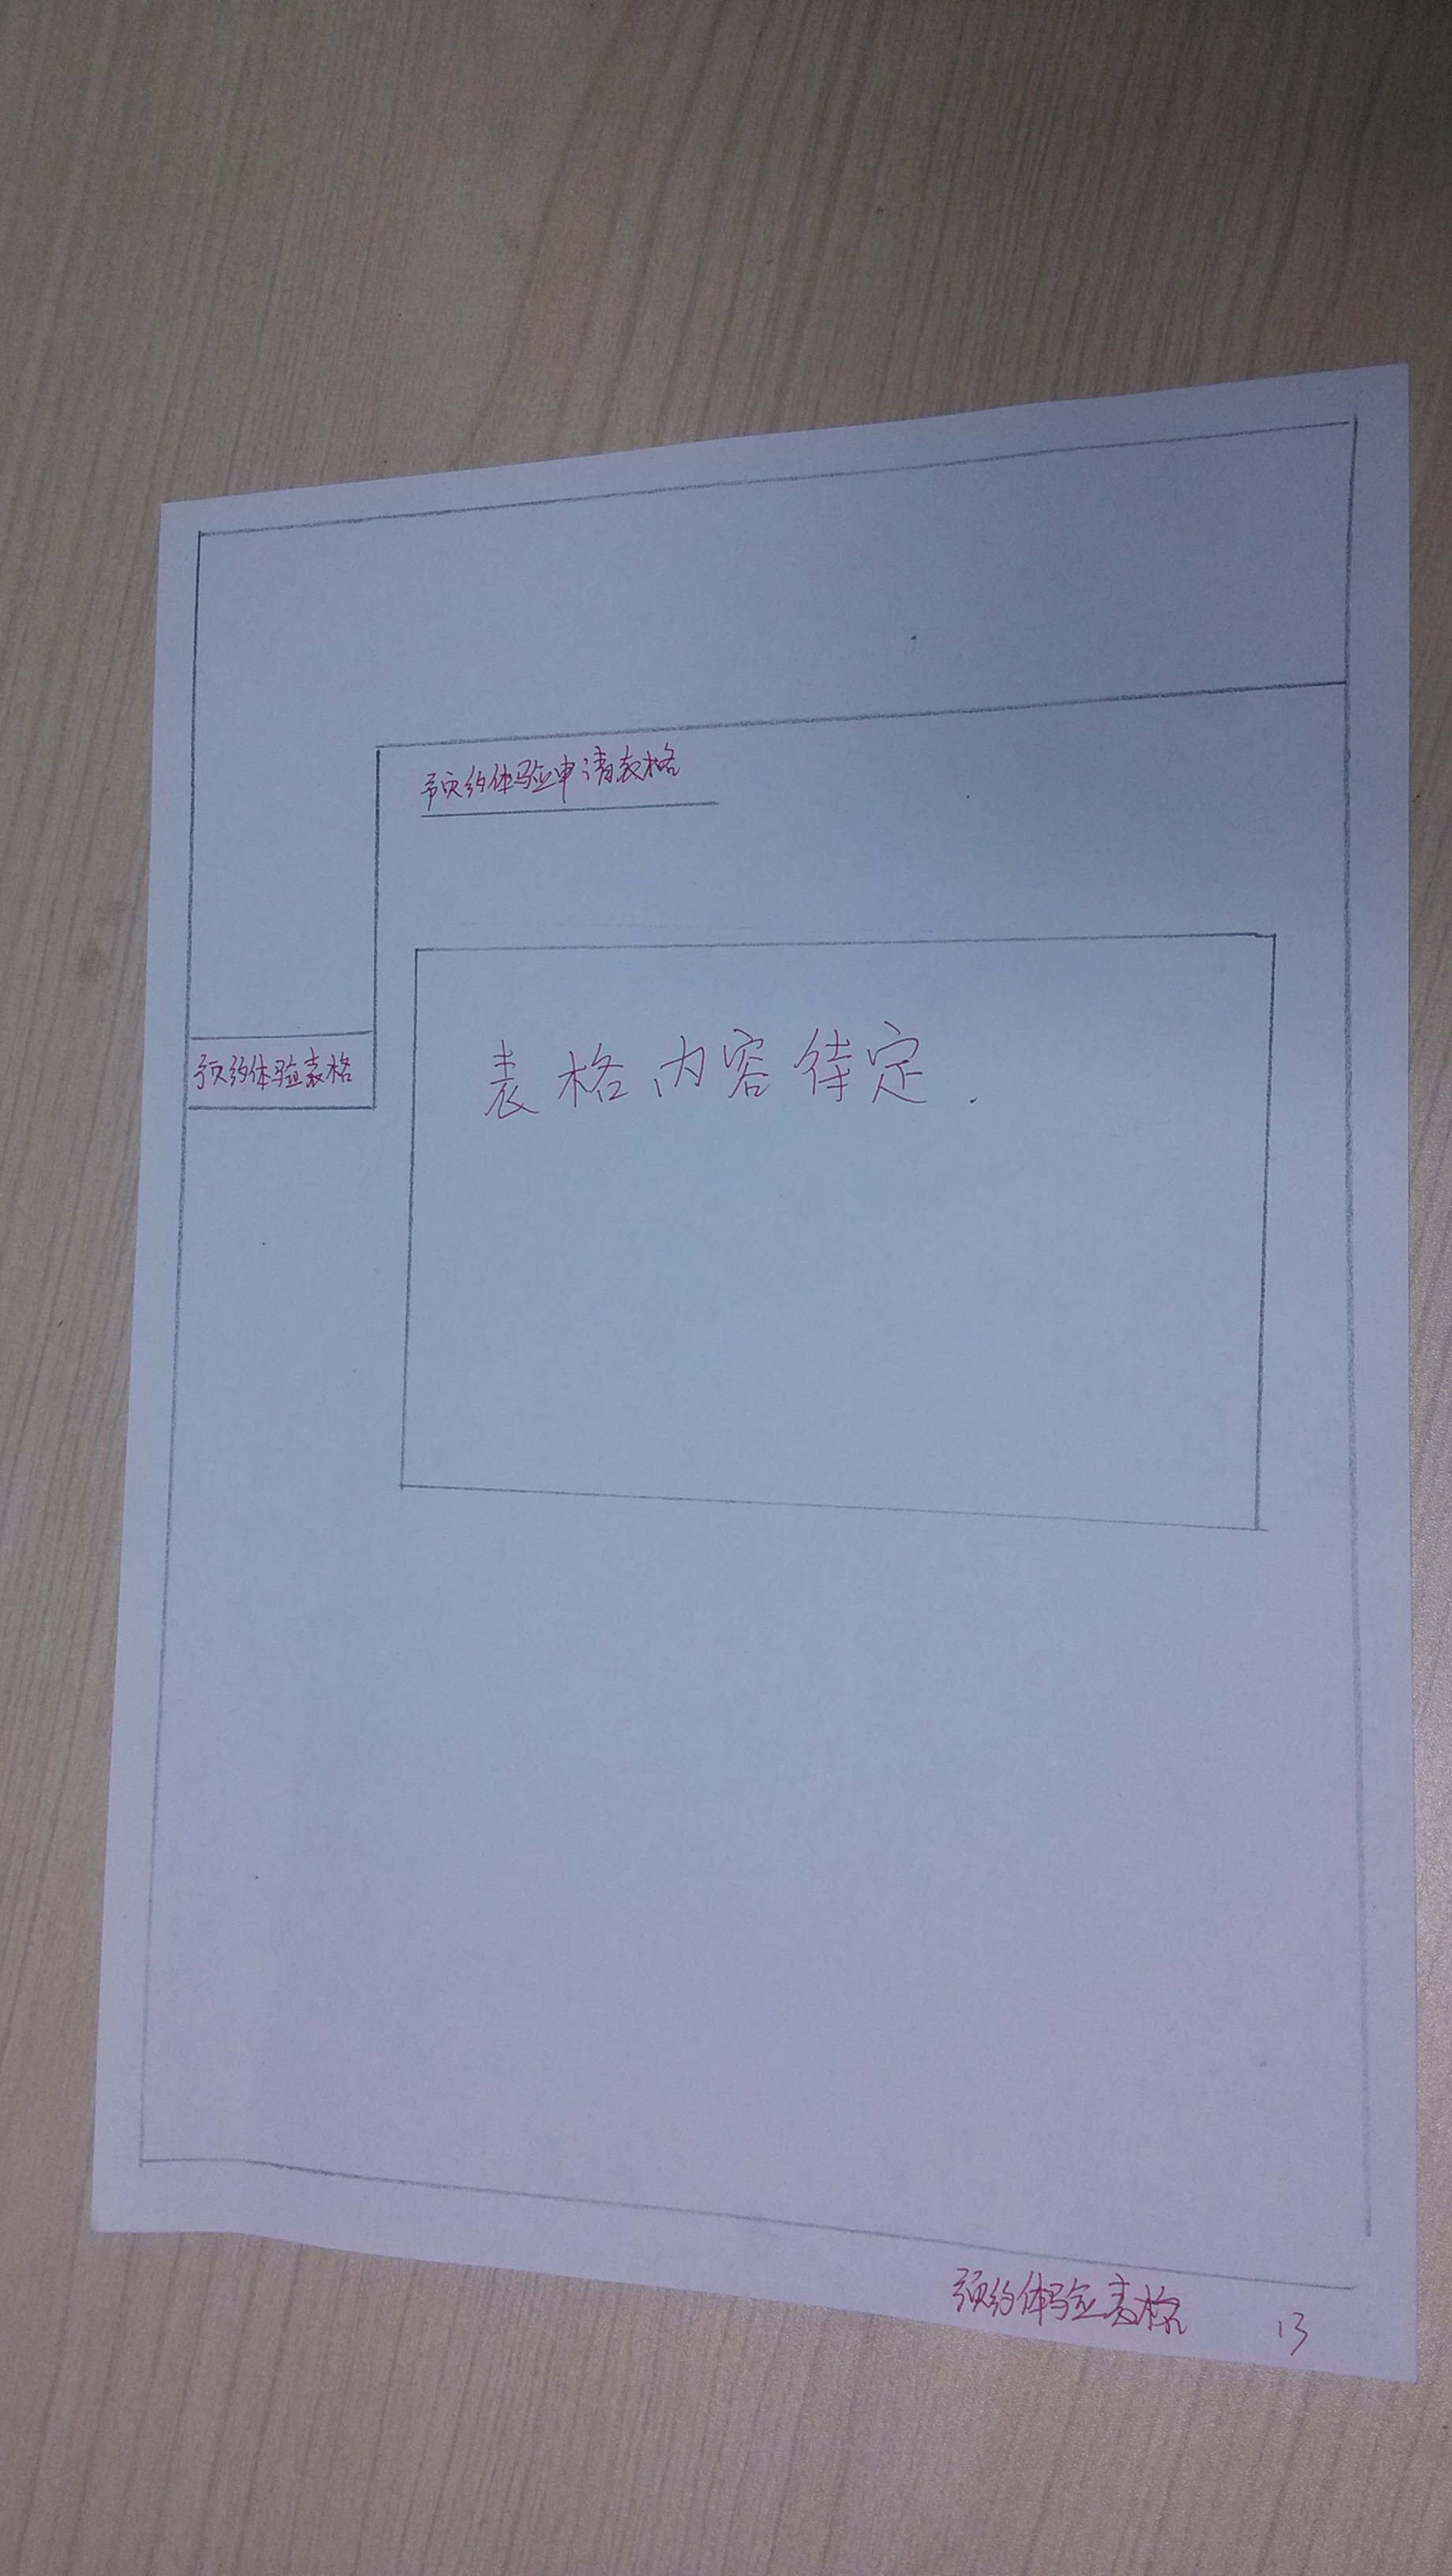 预约体验申请表格
预约体验表格
表格内容待定.
预约体验表格 13